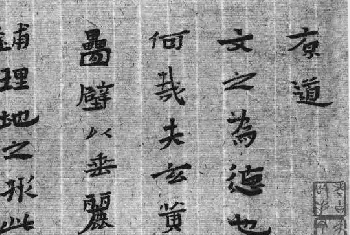 原道
文之為德也
何哉夫玄黃
疊璧以垂麗
鋪理地之形此